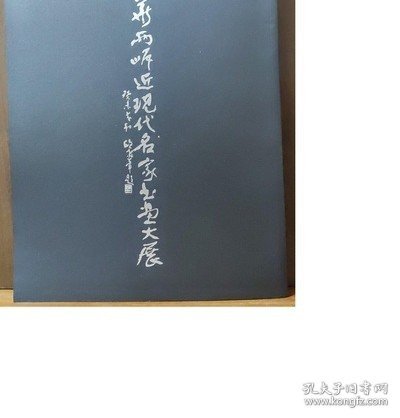 两岸近现代名家书画大展
癸未年初
孔夫子旧书网
www.kongfz.com